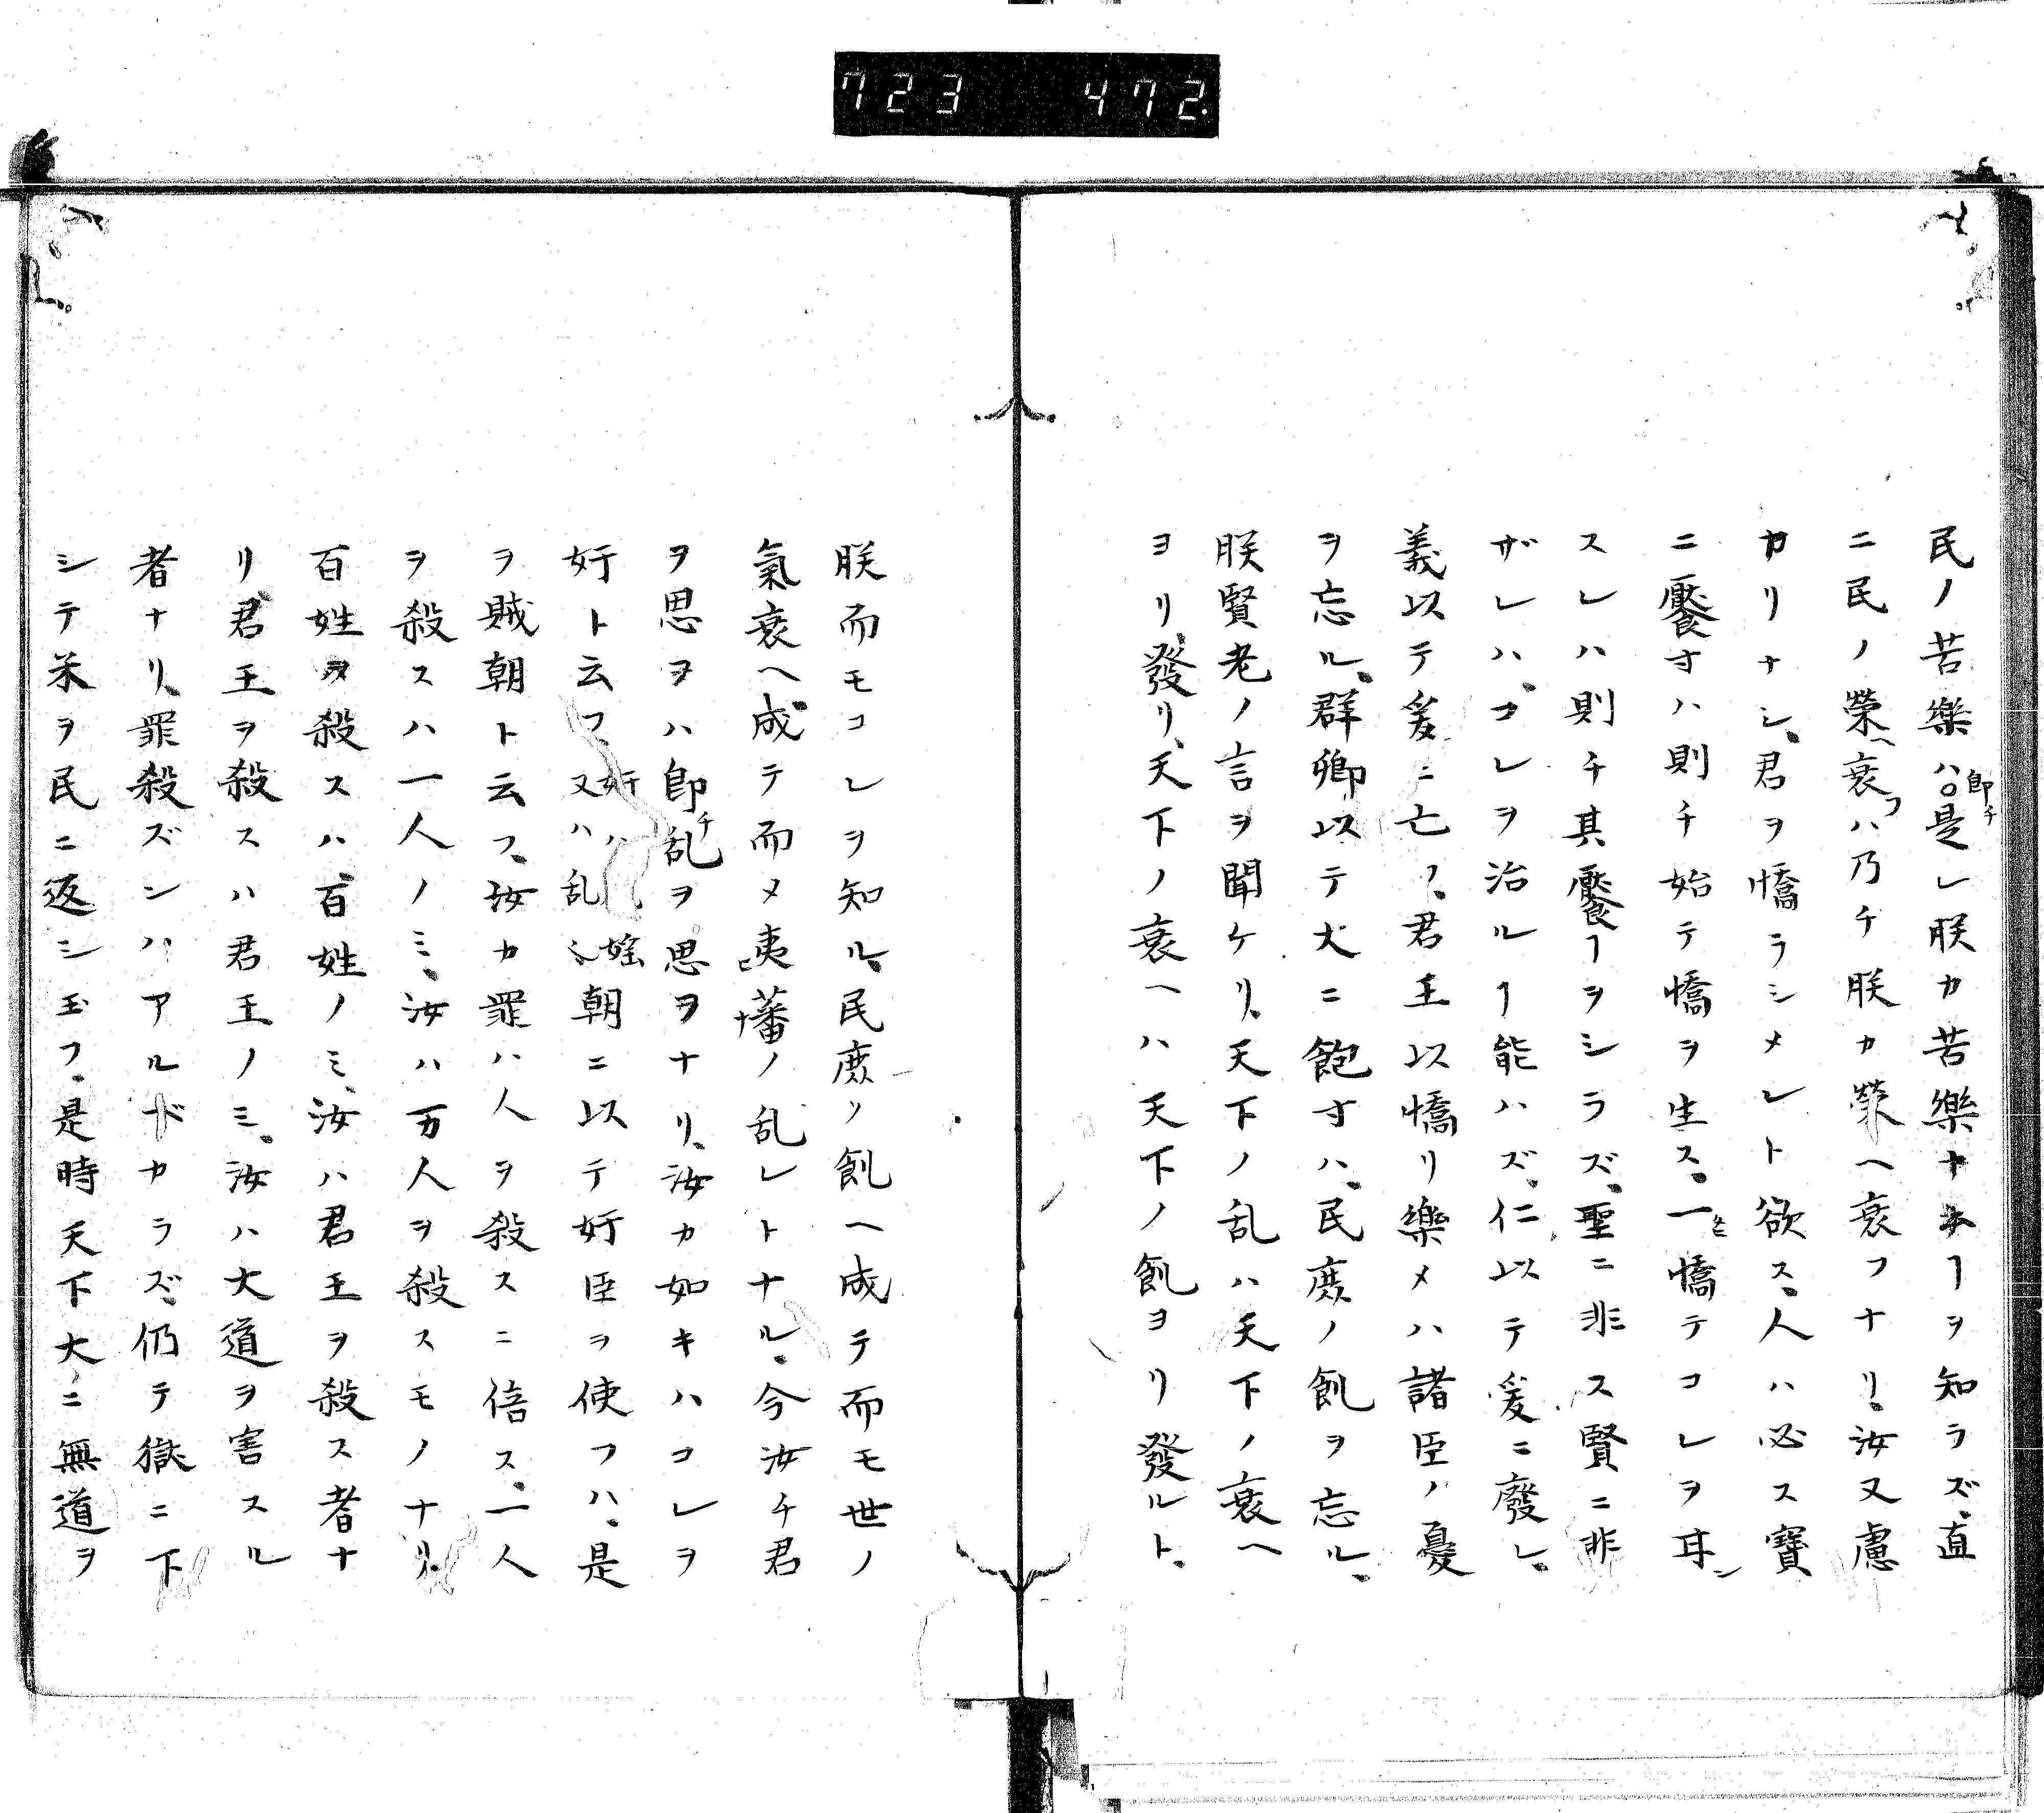 723 472.
民ノ苦樂ハ即チ是レ朕カ苦樂ナルヿヲ知ラズ直
ニ民ノ榮ヘ衰フハ乃チ朕カ榮ヘ衰フナリ汝又慮
カリナシ君ヲ憍ラシメレト欲ス人ハ必ス寶
ニ饜寸ハ則チ始テ憍ヲ生ス一憍テコレヲ耳シ
スレハ則チ其饜ヿヲシラズ聖ニ非ス賢ニ非
ザレハコレヲ治ルヿ能ハズ仁以テ爰ニ廢レ
義以テ爰ニ亡フ君主以憍リ樂メハ諸臣ノ憂
ヲ忘ル群卿以テ大ニ飽寸ハ民庶ノ飢ヲ忘ル
朕賢老ノ言ヲ聞ケリ天下ノ乱ハ天下ノ衰ヘ
ヨリ發リ天下ノ衰ヘハ天下ノ飢ヨリ發ルト
朕而モコレヲ知ル民庶ノ飢ヘ成テ而モ世ノ
氣衰ヘ成テ而メ夷藩ノ乱レトナル今汝チ君
ヲ思ヲハ即チ乱ヲ思ヲナリ汝カ如キハコレヲ
奸ト云フ奸ハ婬又ハ乱シ朝ニ以テ奸臣ヲ使フハ是
ヲ賊朝ト云フ汝カ罪ハ人ヲ殺スニ倍ス一人
ヲ殺スハ一人ノミ汝ハ万人ヲ殺スモノナリ
百姓ヲ殺スハ百姓ノミ汝ハ君王ヲ殺ス者ナ
リ君王ヲ殺スハ君王ノミ汝ハ大道ヲ害スル
者ナリ罪殺ズンハアルベカラズ仍テ獄ニ下
シテ米ヲ民ニ返シ玉フ是時天下大ニ無道ヲ